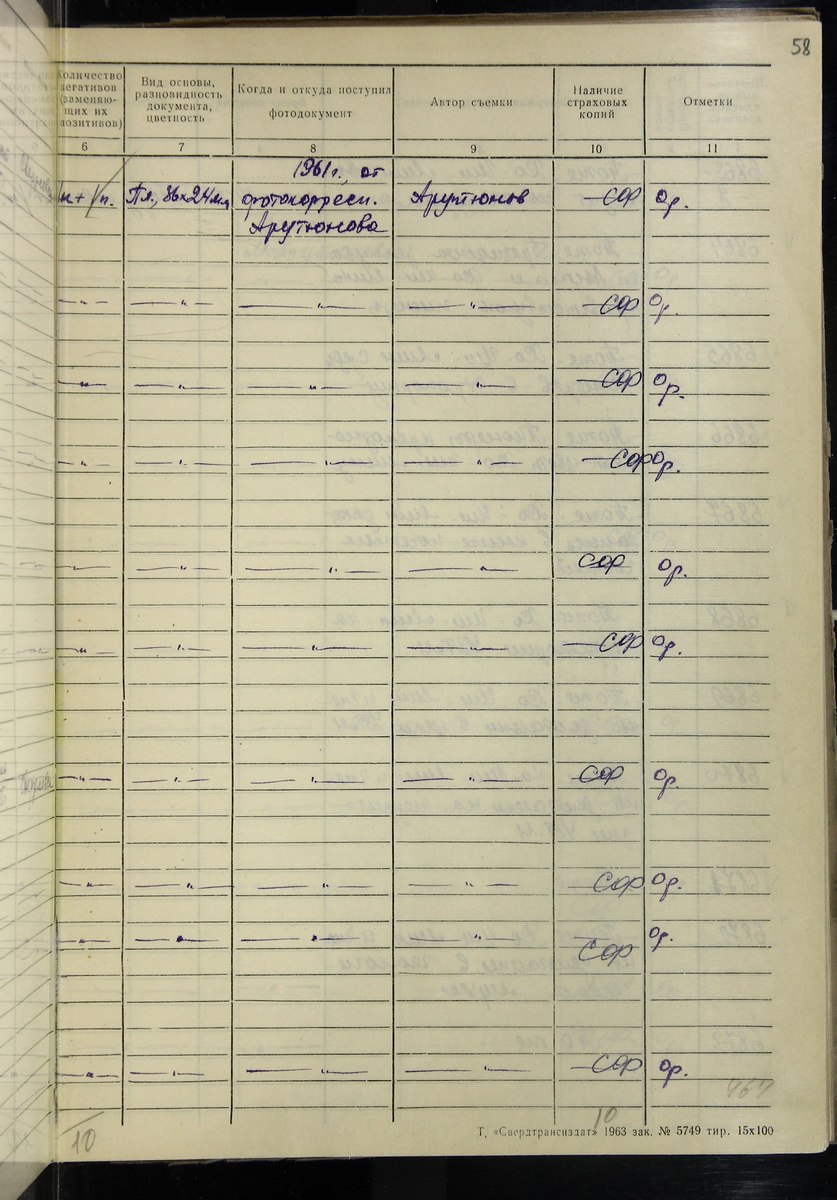 58
Количество негативов (заменяю- щих их позитивов) Вид основы, разновидность документа, цветность Когда и откуда поступил фотодокумент Автор съемки Наличие страховых копий Отметки
6 7 8 9 10 11
1961г., от
фотокорресп. Арутюнов СФ Ор.
Арутюнова
—"— —"— —"— —"— СФ Ор.
—"— —"— —"— —"— СФ Ор.
—"— —"— —"— —"— СФ Ор.
—"— —"— —"— —"— СФ Ор.
—"— —"— —"— —"— СФ Ор.
—"— —"— —"— —"— СФ Ор.
—"— —"— —"— —"— СФ Ор.
—"— —"— —"— —"— СФ Ор.
—"— —"— —"— —"— СФ Ор.
464
10 10
Т, «Свердтрансиздат» 1963 зак. № 5749 тир. 15х100